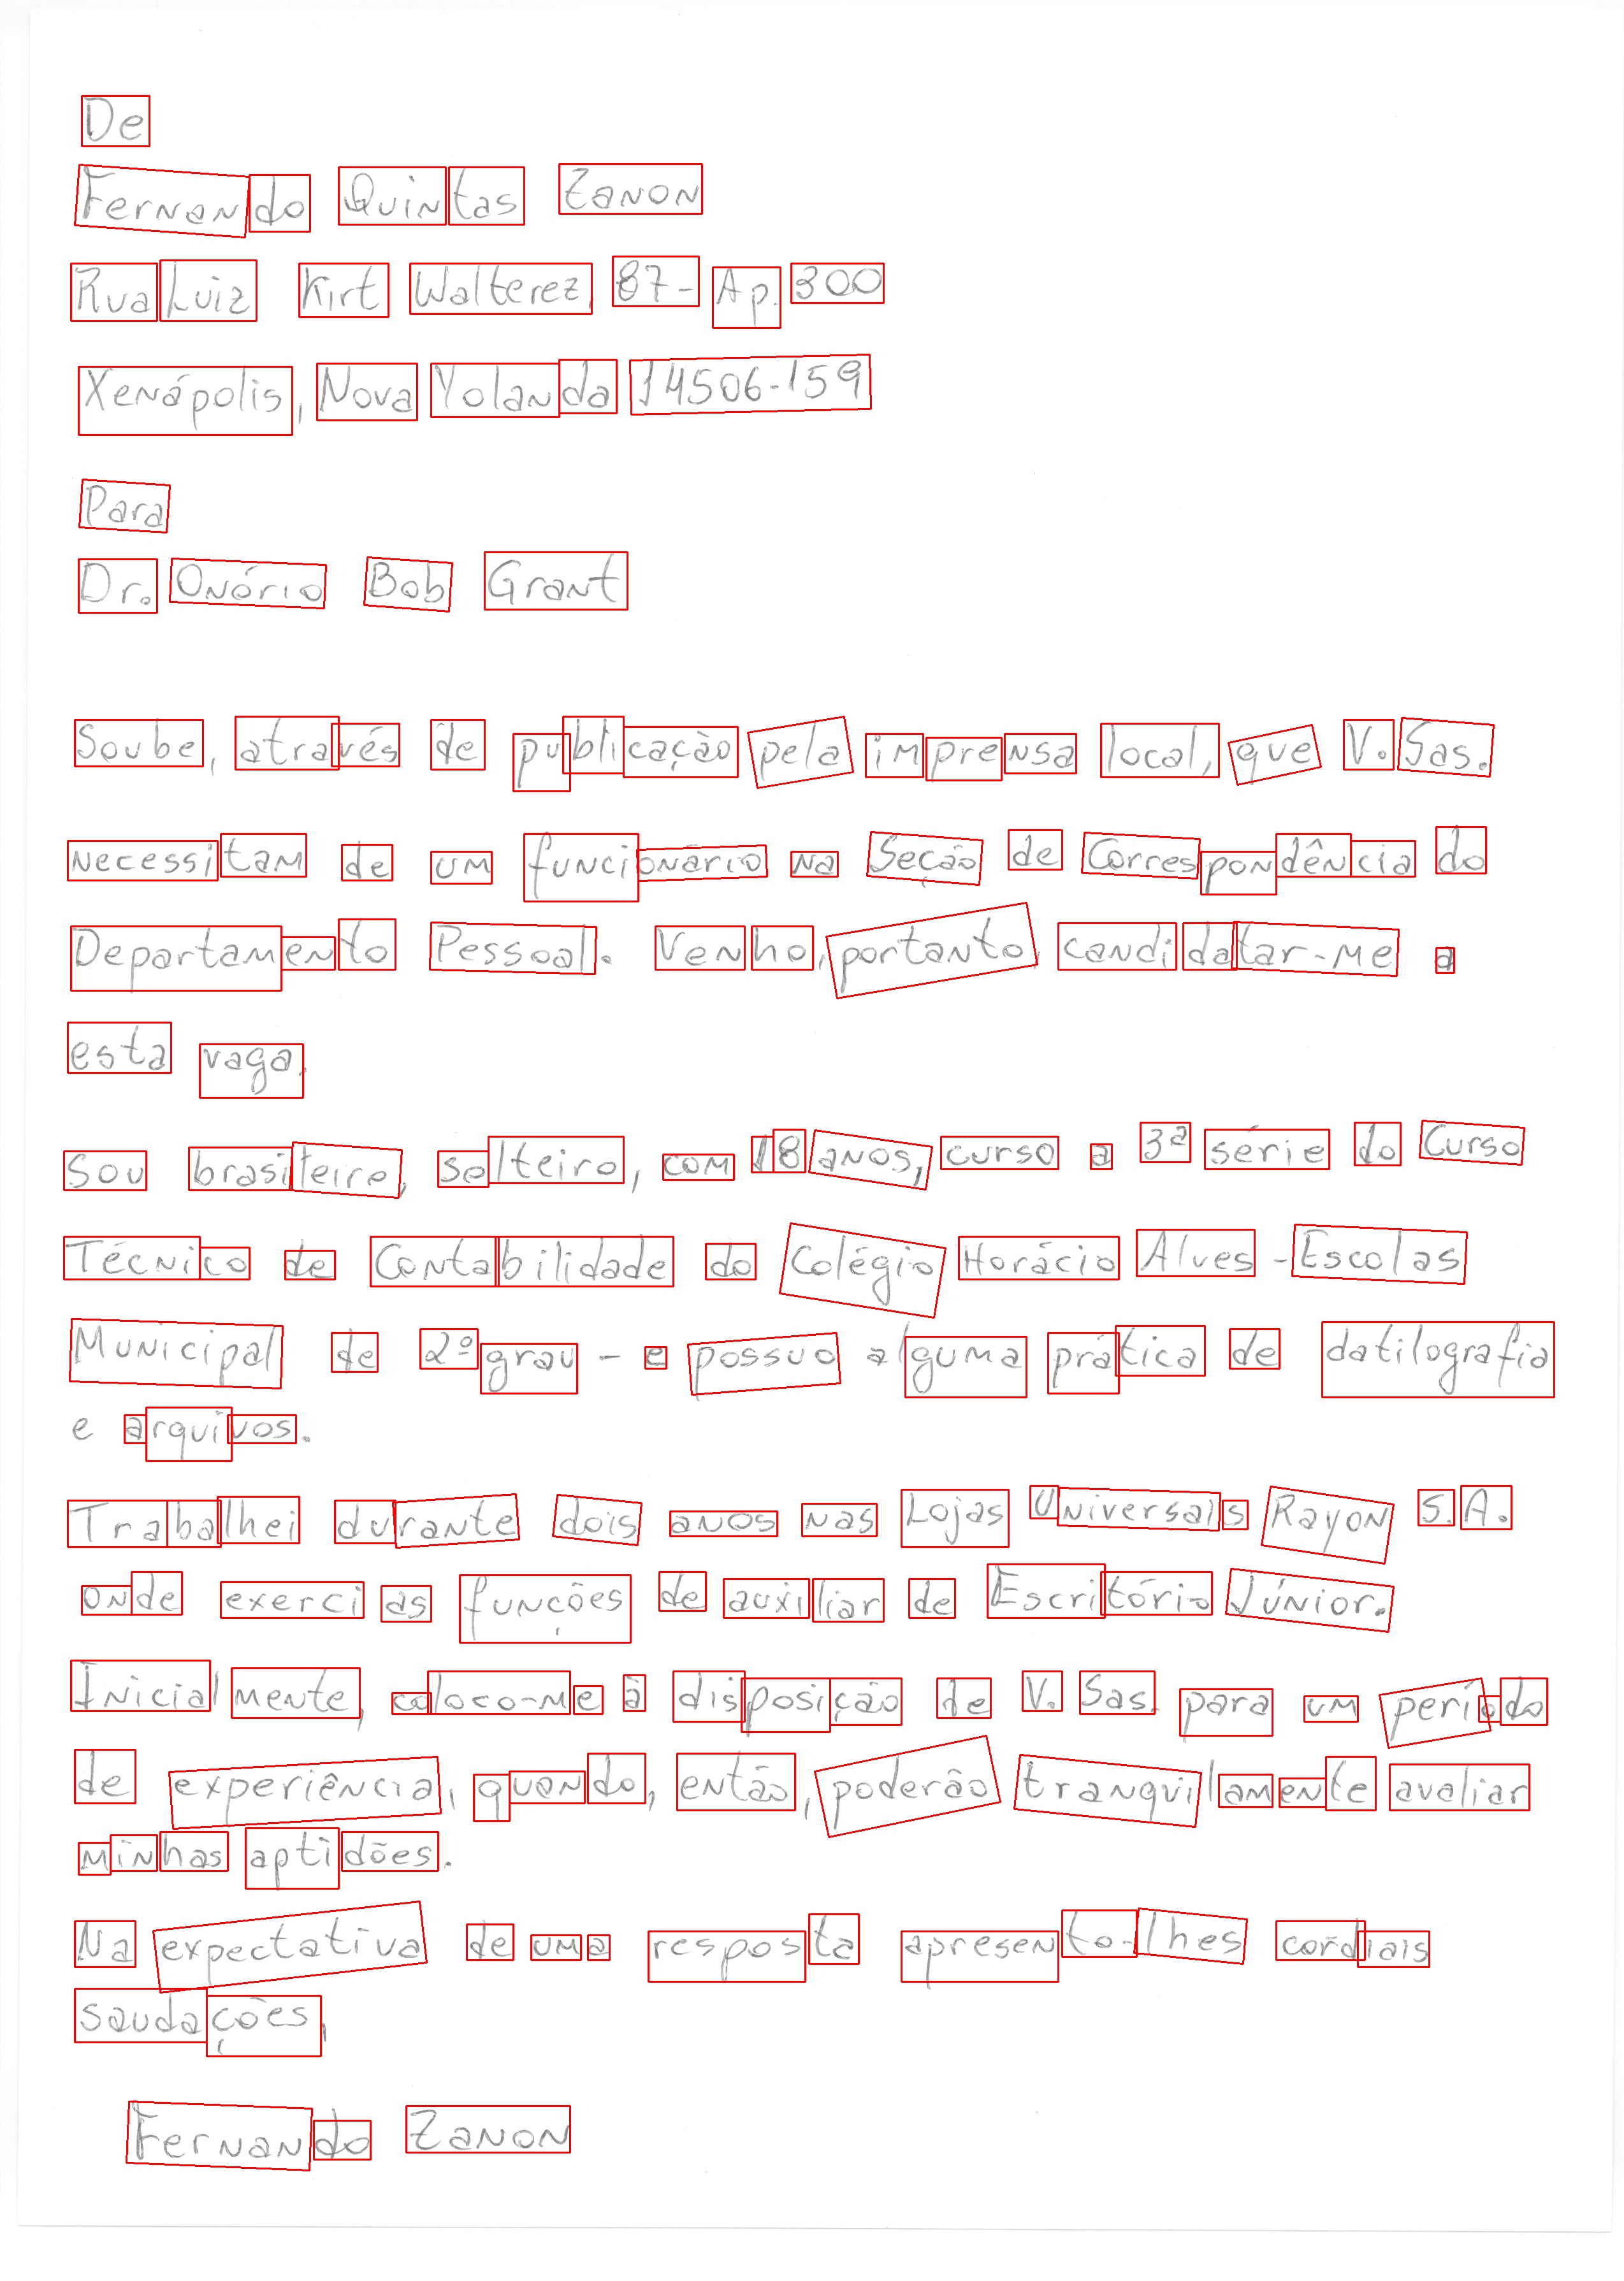 De
Fernando Quintas Zanon
Rua Luiz Kirt Walterez, 87- Ap. 300
Xenápolis, Nova Yolanda 14506-159
Para
Dr. Onório Bob Grant
Soube, através de publicação pela imprensa local, que V. Sas.
necessitam de um funcionário na Seção de Correspondência do
Departamento Pessoal. Venho, portanto, candidatar-me a
esta vaga.
Sou brasileiro, solteiro, com 18 anos, curso a 3ª série do Curso
Técnico de Contabilidade do Colégio Horácio Alves - Escolas
Municipal de 2º grau - e possuo alguma prática de datilografia
e arquivos.
Trabalhei durante dois anos nas Lojas Universals Rayon S.A.
onde exerci as funções de auxiliar de Escritório Júnior.
Inicialmente, coloco-me à disposição de V. Sas. para um período
de experiência, quando, então, poderão tranquilamente avaliar
minhas aptidões.
Na expectativa de uma resposta apresento-lhes cordiais
saudações,
Fernando Zanon